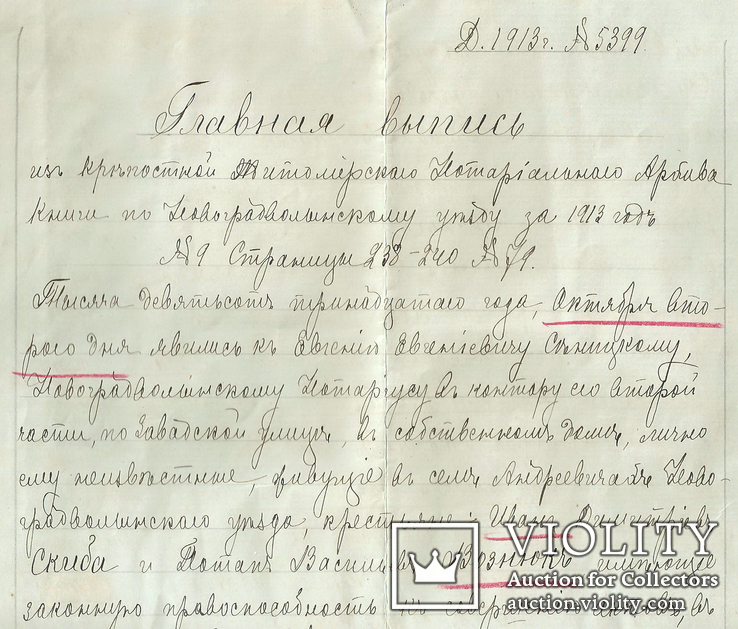 Д. 1913 г. № 5399
Главная выпись
изъ крѣпостной Житомірскаго Нотаріальнаго Архива
книги по Новоградволынскому уѣзду за 1913 годъ
№ 9 Страницы 238-240 № 79.
Тысяча девятьсотъ тринадцатаго года, Октября вто-
рого дня явились къ Евгенію Евгеніевичу
Новоградволынскому Нотаріусу въ контору его второй
части, по Завадской улицѣ, въ собственномъ домѣ, лично
ему неизвѣстные, живущіе въ селѣ Андреевичахъ Ново-
градволынскаго уѣзда, крестьяне: Иванъ Димитріевъ
Скиба и Потапъ Вознюкъ имѣющіе
законную правоспособность къ совершенію актовъ, въ
VIOLITY
Auction for Collectors
auction.violity.com